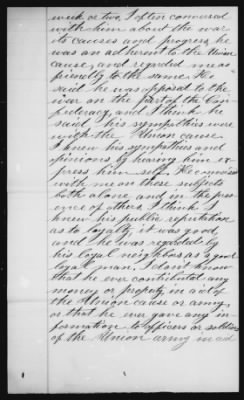 week or two, I often conversed
with him about the war
its causes and progress, he
was an adherent to the Union
cause, and regarded me as
friendly to the same. He
said he was opposed to the
war on the part of the Con-
federacy, and I think he
said his sympathies were
with the Union cause.
I knew his sympathies and
opinions by hearing him ex-
press him self. He conversed
with me on these subjects
both alone and in the pres-
ence of others. I think I
knew his public reputation
as to loyalty, it was good,
and he was regarded by
his loyal neighbors as a good
loyal man. I don't know
that he ever contributed any
money or property in aid of
the Union cause or army,
or that he ever gave any in-
formation to officers or soldiers
of the Union army in aid